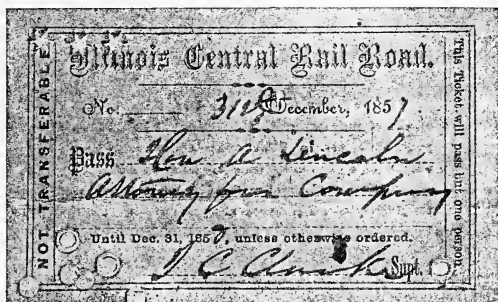 NOT TRANSFERABLE
Illinois Central Rail Road.
No. 31st December, 1857
Pass Hon A Lincoln
Attorney for Company
Until Dec. 31, 1858, unless otherwise ordered.
Clark Supt.
This Ticket will pass but one person